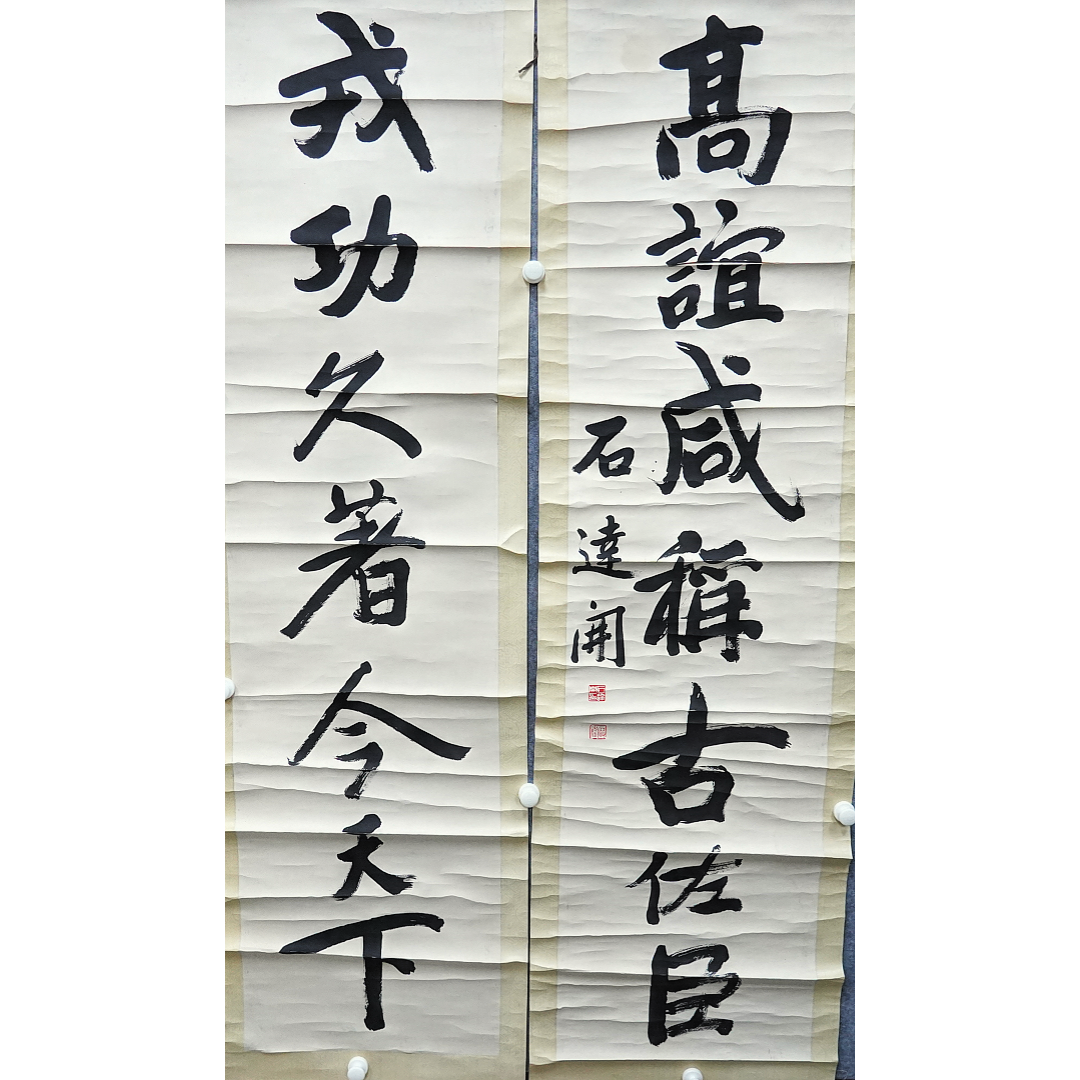 髙誼咸稱古佐臣
石達開
戎功久著今天下